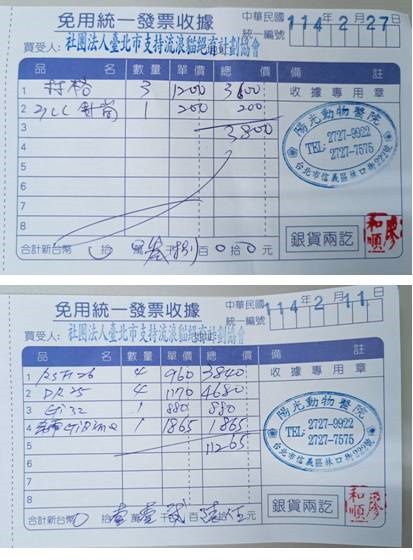 免用統一發票收據
中華民國 114年2月27日
統一編號
買受人: 社團法人臺北市支持流浪貓絕育計劃協會
品名 數量 單價 總價 備註
1 3 1200 3600 收據專用章
2 針筒 1 200 200
3 3800
4
5
6
7
8
陽光動物醫院
TEL: 2727-9922
2727-7575
台北市信義區林口街
合計新台幣 拾 萬 仟 捌 百 0 拾 0 元
銀貨兩訖
廖和順
免用統一發票收據
中華民國 114年2月11日
統一編號
買受人: 社團法人臺北市支持流浪貓絕育計劃協會
品名 數量 單價 總價 備註
1 4 960 3840 收據專用章
2 4 1170 4680
3 Gi32 1 880 880
4 1 1865 1865
5 11265
6
7
8
陽光動物醫院
TEL: 2727-9922
2727-7575
台北市信義區林口街
合計新台幣 0 拾 壹 萬 壹 千 貳 百 陸 拾 伍 元
銀貨兩訖
廖和順